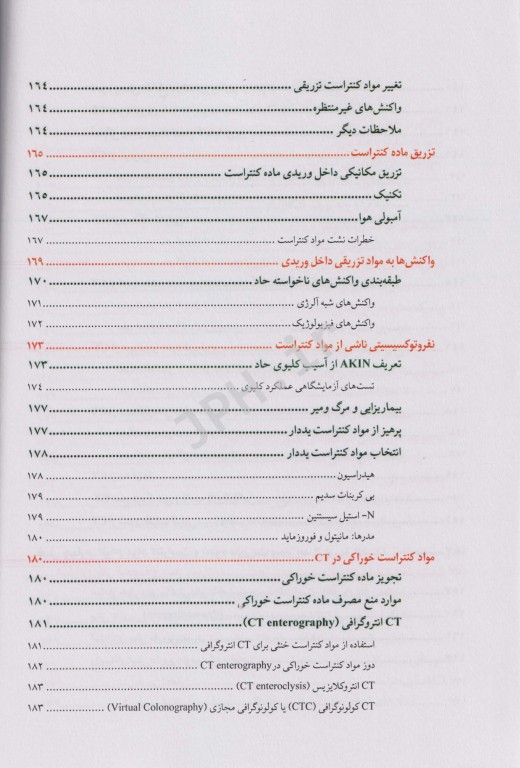 تغییر مواد کنتراست تزریقی ........ ۱۶۴
واکنش‌های غیرمنتظره ........ ۱۶۴
ملاحظات دیگر ........ ۱۶۴
تزریق ماده کنتراست ........ ۱۶۵
تزریق مکانیکی داخل وریدی ماده کنتراست ........ ۱۶۵
تکنیک ........ ۱۶۵
آمبولی هوا ........ ۱۶۷
خطرات نشت مواد کنتراست ........ ۱۶۷
واکنش‌ها به مواد تزریقی داخل وریدی ........ ۱۶۹
طبقه‌بندی واکنش‌های ناخواسته حاد ........ ۱۷۰
واکنش‌های شبه آلرژی ........ ۱۷۱
واکنش‌های فیزیولوژیک ........ ۱۷۲
نفروتوکسیسیتی ناشی از مواد کنتراست ........ ۱۷۳
تعریف AKIN از آسیب کلیوی حاد ........ ۱۷۳
تست‌های آزمایشگاهی عملکرد کلیوی ........ ۱۷۴
بیماریزایی و مرگ ومیر ........ ۱۷۷
پرهیز از مواد کنتراست یددار ........ ۱۷۷
انتخاب مواد کنتراست یددار ........ ۱۷۸
هیدراسیون ........ ۱۷۸
بی کربنات سدیم ........ ۱۷۹
N- استیل سیستئین ........ ۱۷۹
مدرها: مانیتول و فوروزماید ........ ۱۸۰
مواد کنتراست خوراکی در CT ........ ۱۸۰
تجویز ماده کنتراست خوراکی ........ ۱۸۰
موارد منع مصرف ماده کنتراست خوراکی ........ ۱۸۰
CT انتروگرافی (CT enterography) ........ ۱۸۱
استفاده از مواد کنتراست خنثی برای CT انتروگرافی ........ ۱۸۱
دوز مواد کنتراست خوراکی در CT enterography ........ ۱۸۲
CT انتروکلایزیس (CT enteroclysis) ........ ۱۸۳
CT کولونوگرافی (CTC) یا کولونوگرافی مجازی (Virtual Colonography) ........ ۱۸۳
JPH.ir